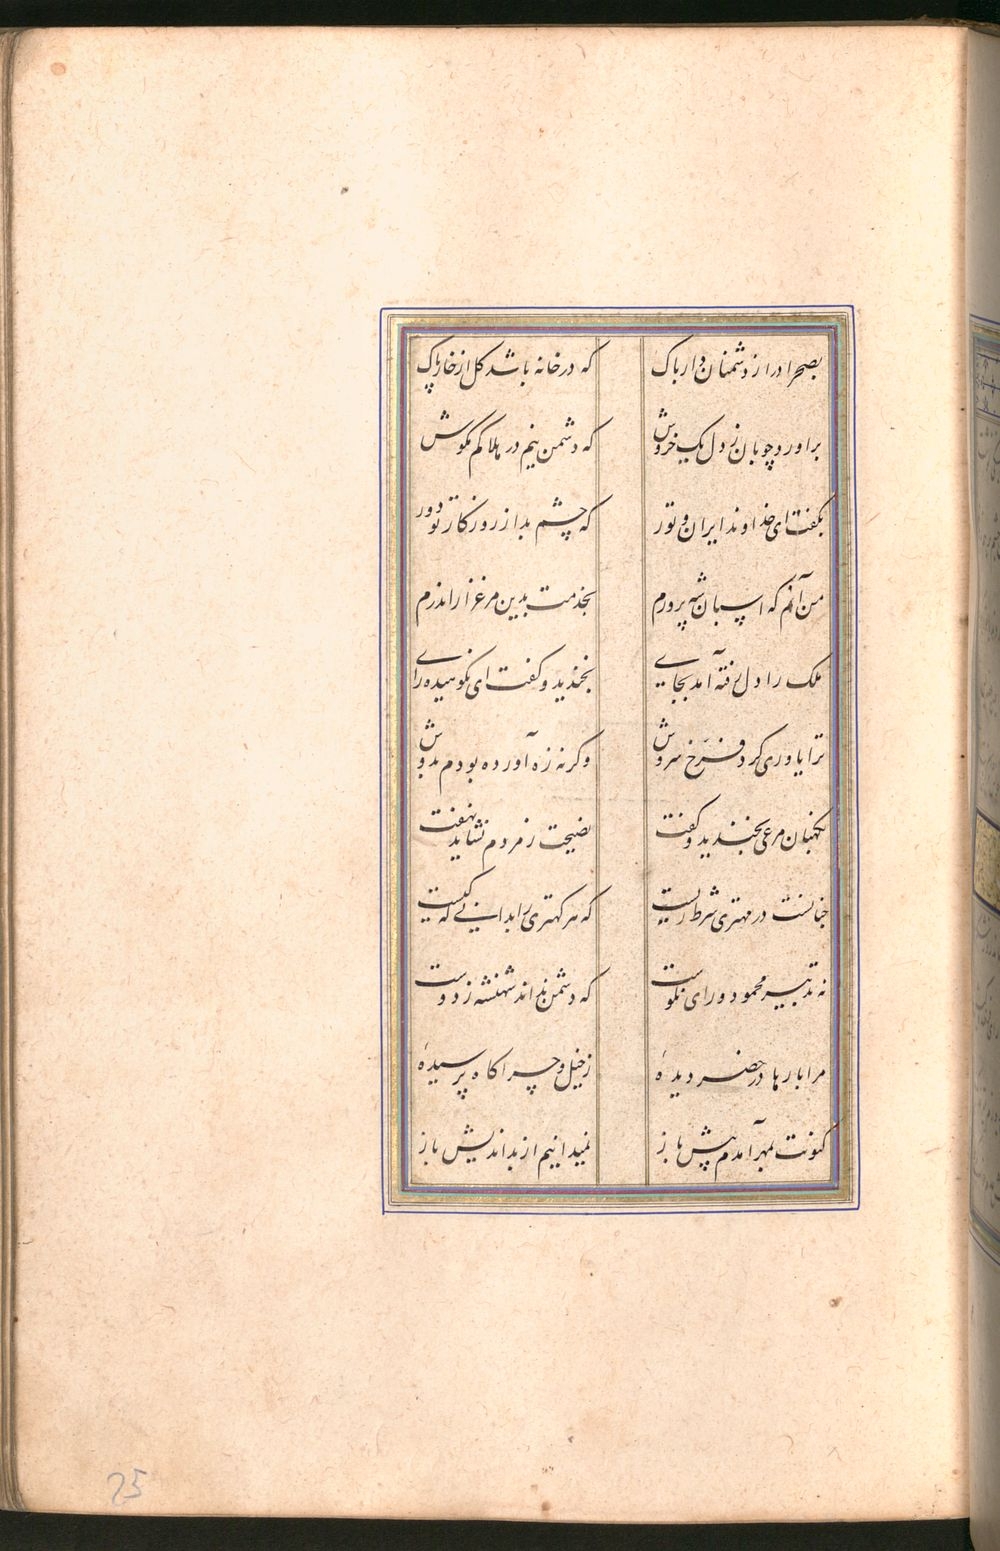 بصحرا در از دشمنان دار باک که در خانه باشد کل از خار پاک
براورد چوبان ز دل یک خروش که دشمن نیم در هلاکم مکوش
بکفت ای خداوند ایران و تور که چشم بد از روزکار تو دور
من آنم که اسپان شه پرورم بخدمت بدین مرغزار اندرم
ملک را دل رفته آمد بجای بخندید و کفت ای نکوهیده رای
ترا یاوری کرد فرخ سروش وکرنه زه آورده بودم بدوش
نکهبان مرعی بخندید و کفت نصیحت ز مردم نشاید نهفت
چنانست در مهتری شرط زیست که هر کهتری را بدانی که کیست
نه تدبیر محمود و رای نکوست که دشمن نداند شهنشه ز دوست
مرا بارها در حضر دیدهٔ ز خیل و چراکاه پرسیدهٔ
کنونت بمهر آمدم پیش باز نمیدانیم از بداندیش باز
25